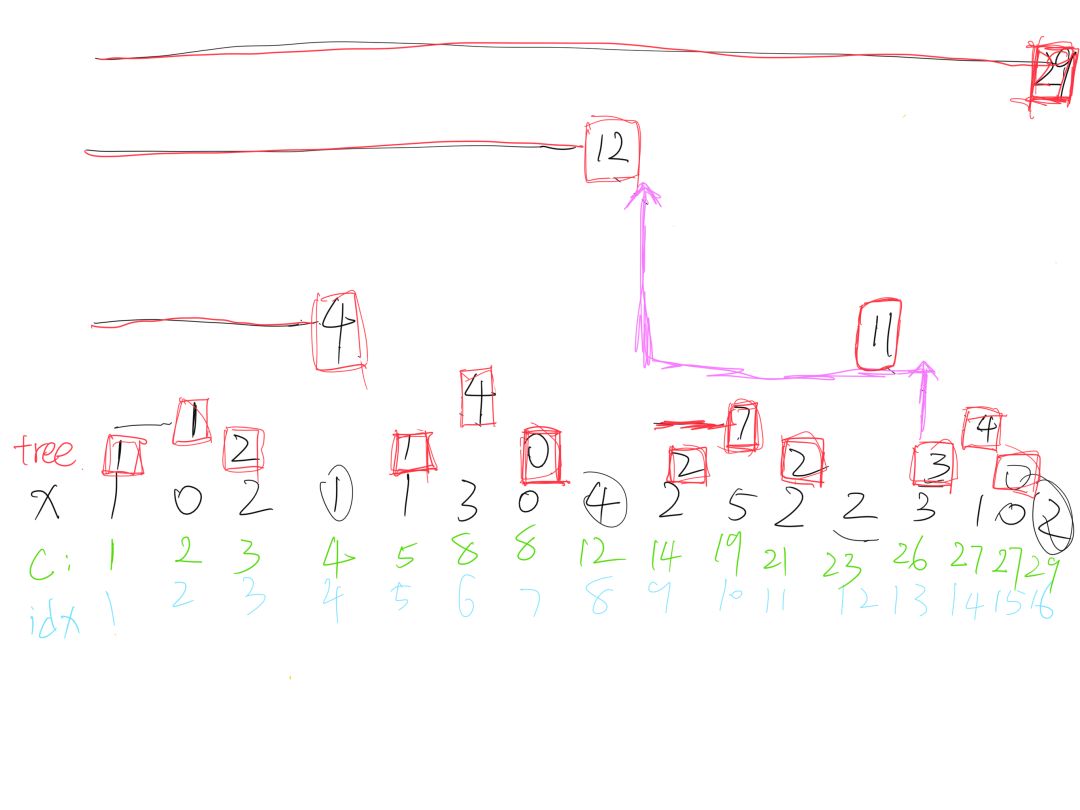 29
12
4 11
4
1 7 4
tree 1 2 1 0 2 2 3 0
x 1 0 2 1 1 3 0 4 2 5 2 2 3 1 0 2
C: 1 2 3 4 5 8 8 12 14 19 21 23 26 27 27 29
idx 1 2 3 4 5 6 7 8 9 10 11 12 13 14 15 16